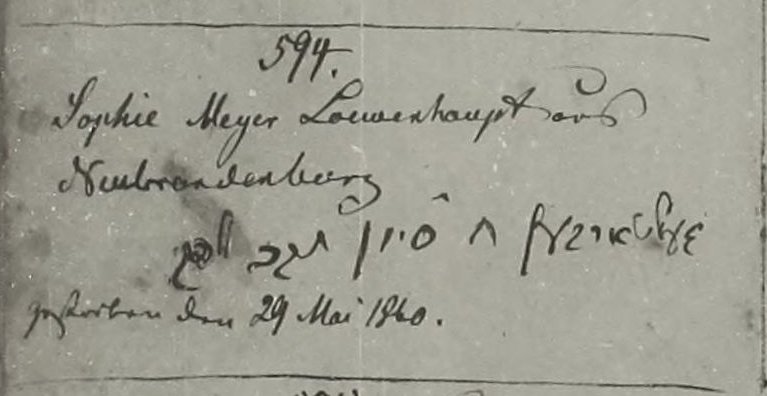 594.
Sophie Meyer Loewenhaupt aus
Neubrandenburg
געשטארבען ח סיון תרכ לפק
gestorben den 29 Mai 1860.